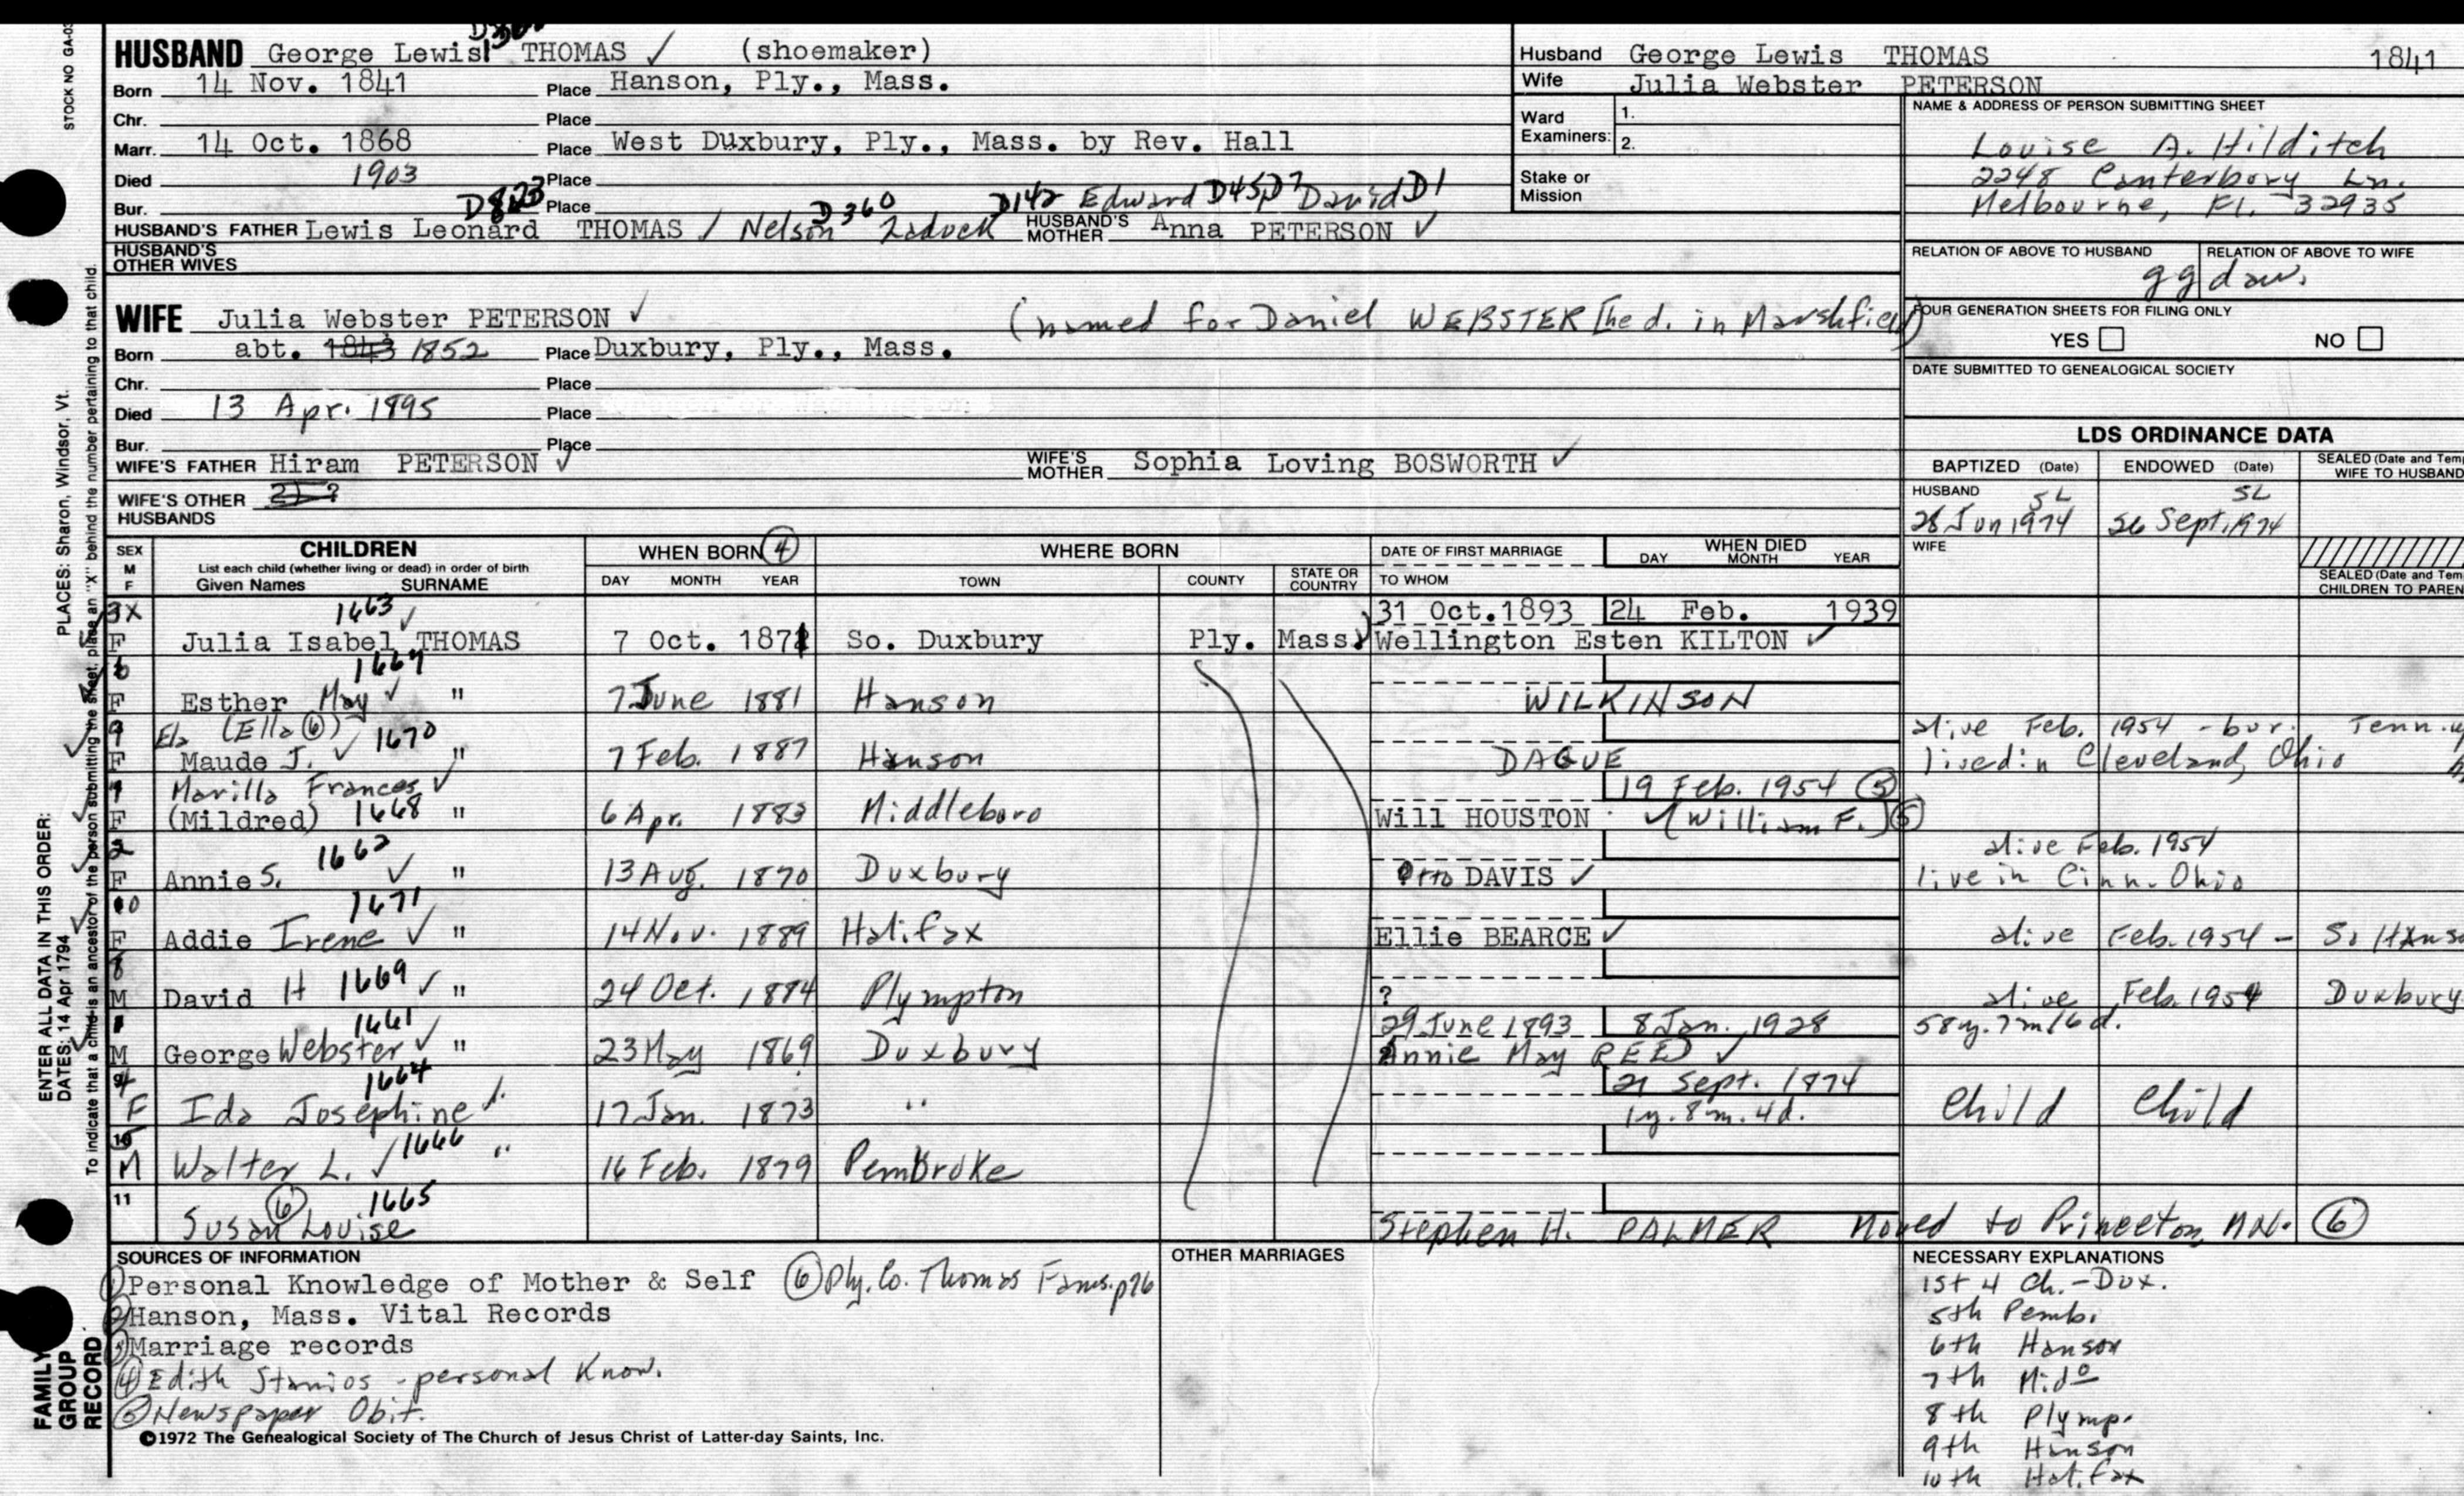 HUSBAND George Lewis THOMAS ✓ (shoemaker)
Born 14 Nov. 1841 Place Hanson, Ply., Mass.
Chr. Place
Marr. 14 Oct. 1868 Place West Duxbury, Ply., Mass. by Rev. Hall
Died 1903 Place
Bur. Place
D823 D360 D142 Edward D45 D7 David D1
HUSBAND'S FATHER Lewis Leonard THOMAS / Nelson Zadock HUSBAND'S MOTHER Anna PETERSON ✓
HUSBAND'S OTHER WIVES
WIFE Julia Webster PETERSON ✓ (named for Daniel WEBSTER [he d. in Marshfield)
Born abt. 1843 1852 Place Duxbury, Ply., Mass.
Chr. Place
Died 13 Apr. 1895 Place
Bur. Place
WIFE'S FATHER Hiram PETERSON ✓ WIFE'S MOTHER Sophia Loving BOSWORTH ✓
WIFE'S OTHER HUSBANDS 2) ?
Husband George Lewis THOMAS 1841
Wife Julia Webster PETERSON
Ward Examiners: 1.
2.
Stake or Mission
NAME & ADDRESS OF PERSON SUBMITTING SHEET
Louise A. Hilditch
2248 Canterbury Ln.
Melbourne, Fl. 32935
RELATION OF ABOVE TO HUSBAND RELATION OF ABOVE TO WIFE
gg dau.
FOUR GENERATION SHEETS FOR FILING ONLY
YES NO
DATE SUBMITTED TO GENEALOGICAL SOCIETY
LDS ORDINANCE DATA
BAPTIZED (Date) ENDOWED (Date) SEALED (Date and Tem WIFE TO HUSBAND
HUSBAND SL SL
28 Jun 1974 26 Sept. 1974
WIFE
SEALED (Date and Tem CHILDREN TO PAREN
SEX M F CHILDREN WHEN BORN ④ WHERE BORN DATE OF FIRST MARRIAGE WHEN DIED
List each child (whether living or dead) in order of birth
Given Names SURNAME DAY MONTH YEAR TOWN COUNTY STATE OR COUNTRY TO WHOM DAY MONTH YEAR
3X 1663 ✓ 31 Oct. 1893 24 Feb. 1939
F Julia Isabel THOMAS 7 Oct. 1871 So. Duxbury Ply. Mass. Wellington Esten KILTON ✓
6 1667
F Esther May ✓ " 7 June 1881 Hanson WILKINSON
9 Ela (Ella ⑥) 1670 alive Feb. 1954 - bur. Tenn.
F Maude J. ✓ " 7 Feb. 1887 Hanson DAGUE lived in Cleveland, Ohio
7 Marilla Frances ✓ 19 Feb. 1954 ⑤
F (Mildred) 1668 " 6 Apr. 1883 Middleboro Will HOUSTON ✓ (William F.) ⑤
2 1662 alive Feb. 1954
F Annie S. ✓ " 13 Aug. 1870 Duxbury Otto DAVIS ✓ live in Cinn. Ohio
10 1671
F Addie Irene ✓ " 14 Nov. 1889 Halifax Ellie BEARCE ✓ alive Feb. 1954 - So Hans
8
M David H 1669 ✓ " 24 Oct. 1884 Plympton ? alive Feb. 1954 Duxbury
1 1661 29 June 1893 8 Jan. 1928 58y. 7m 16d.
M George Webster ✓ " 23 May 1869 Duxbury Annie May REED ✓
4 1664 21 Sept. 1874
F Ida Josephine ✓ 17 Jan. 1873 " 1y. 8m. 4d. Child Child
10 1666
M Walter L. ✓ " 16 Feb. 1879 Pembroke
11 ⑥ 1665
Susan Louise Stephen H. PALMER Moved to Princeton, ⑥
SOURCES OF INFORMATION OTHER MARRIAGES NECESSARY EXPLANATIONS
① Personal Knowledge of Mother & Self ⑥ Ply. Co. Thomas Fams. p76
② Hanson, Mass. Vital Records
③ Marriage records
④ Edith - personal Know.
⑤ Newspaper Obit.
1st 4 Ch. - Dux.
5th Pemb.
6th Hanson
7th Mido
8th Plymp.
9th Hanson
10th Halifax
©1972 The Genealogical Society of The Church of Jesus Christ of Latter-day Saints, Inc.
STOCK NO GA-03
PLACES: Sharon, Windsor, Vt.
ENTER ALL DATA IN THIS ORDER:
DATES: 14 Apr 1794
To indicate that a child is an ancestor of the person submitting the sheet, place an "X" behind the number pertaining to that child.
FAMILY GROUP RECORD